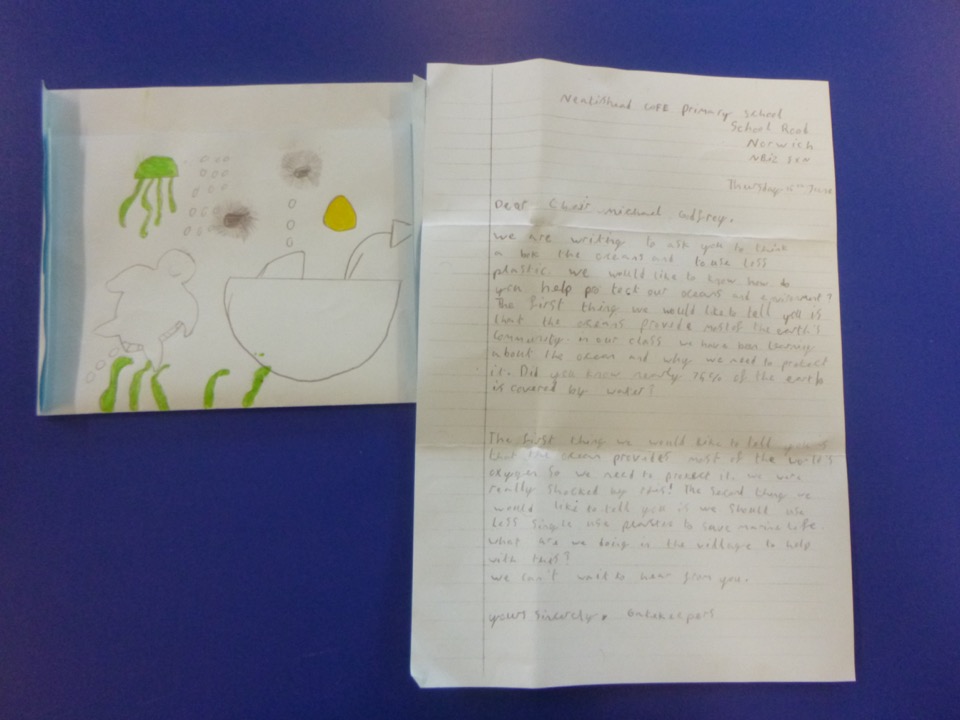 Neatishead CofE primary school
School Road
Norwich
NR12
Thursday June
Dear Chair michael Godfrey,
we are writing to ask you to think
a the oceans and to use less
plastic. we would like to know how do
you help our oceans and
The first thing we would like to tell you is
that the oceans provide most of the earth's
Community. in our class we have been learning
about the ocean and why we need to protect
it. Did you know nearly of the earth
is covered by water?
The first thing we would like to tell you is
that the ocean provides most of the world's
oxygen so we need to protect it. we were
really shocked by this! The second thing we
would like to tell you is we should use
less single use plastic to save marine life.
what are we doing in the village to help
with this?
we can't wait to hear from you.
yours sincerely,